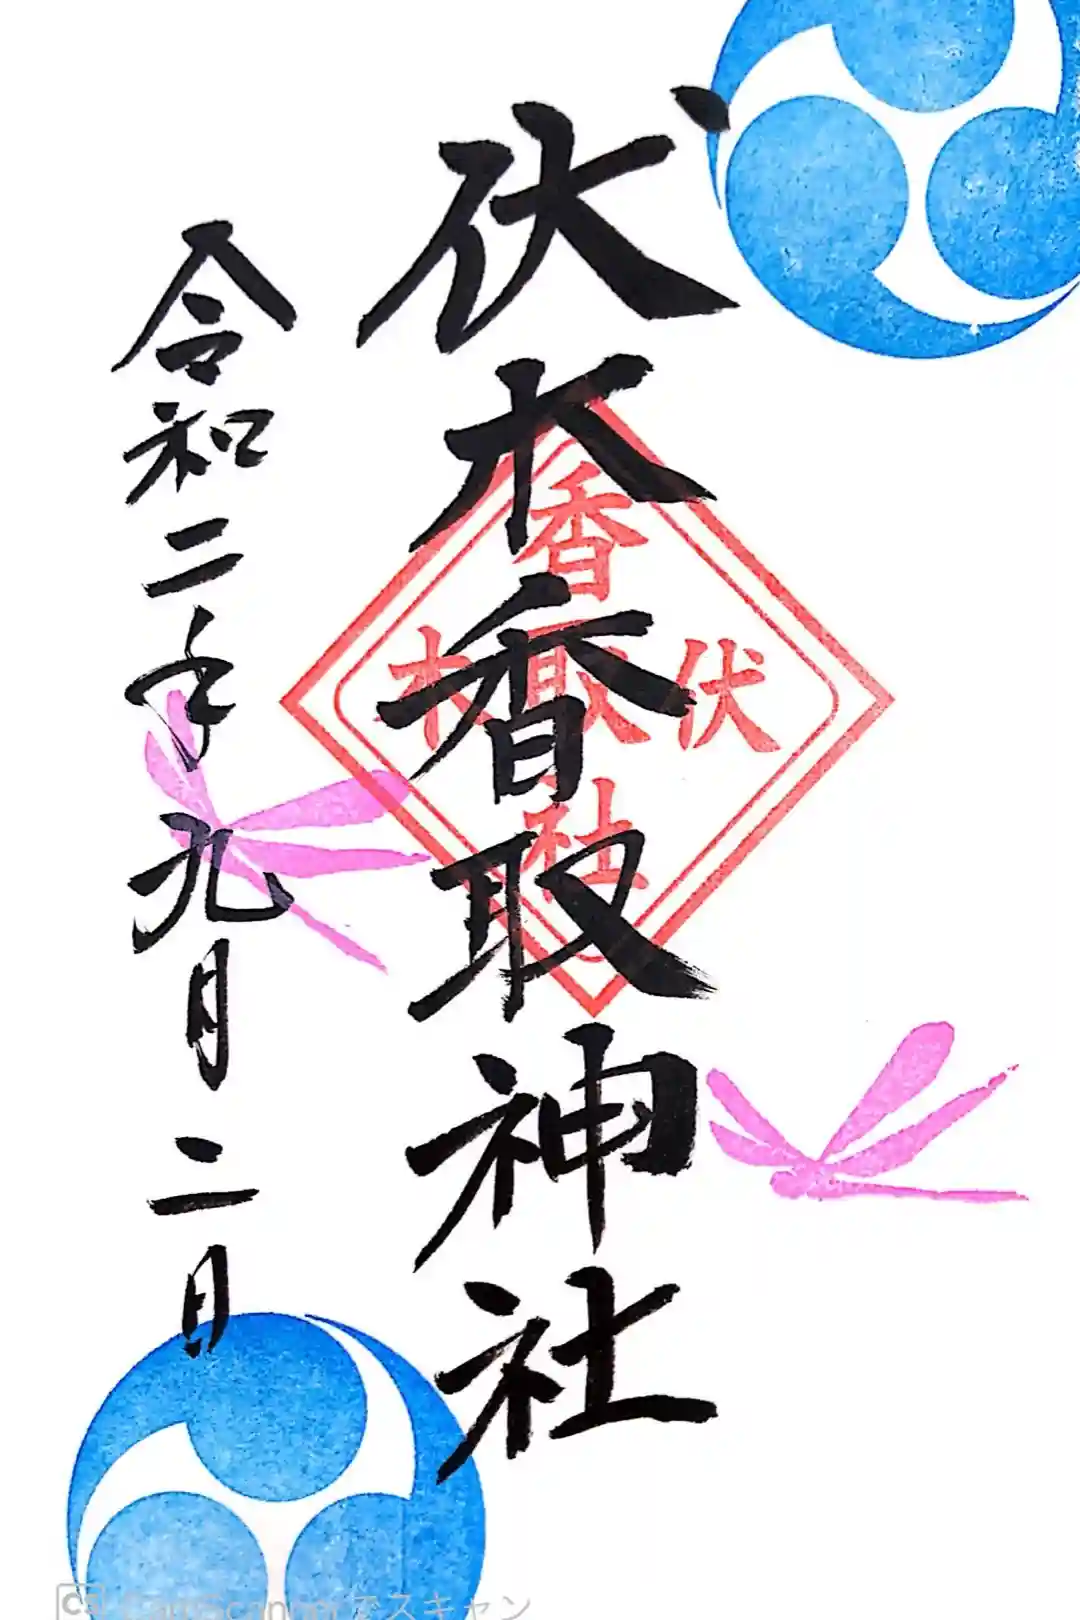 伏木香取神社
令和二年九月二日
香
伏取木
社
CS CamScannerでスキャン